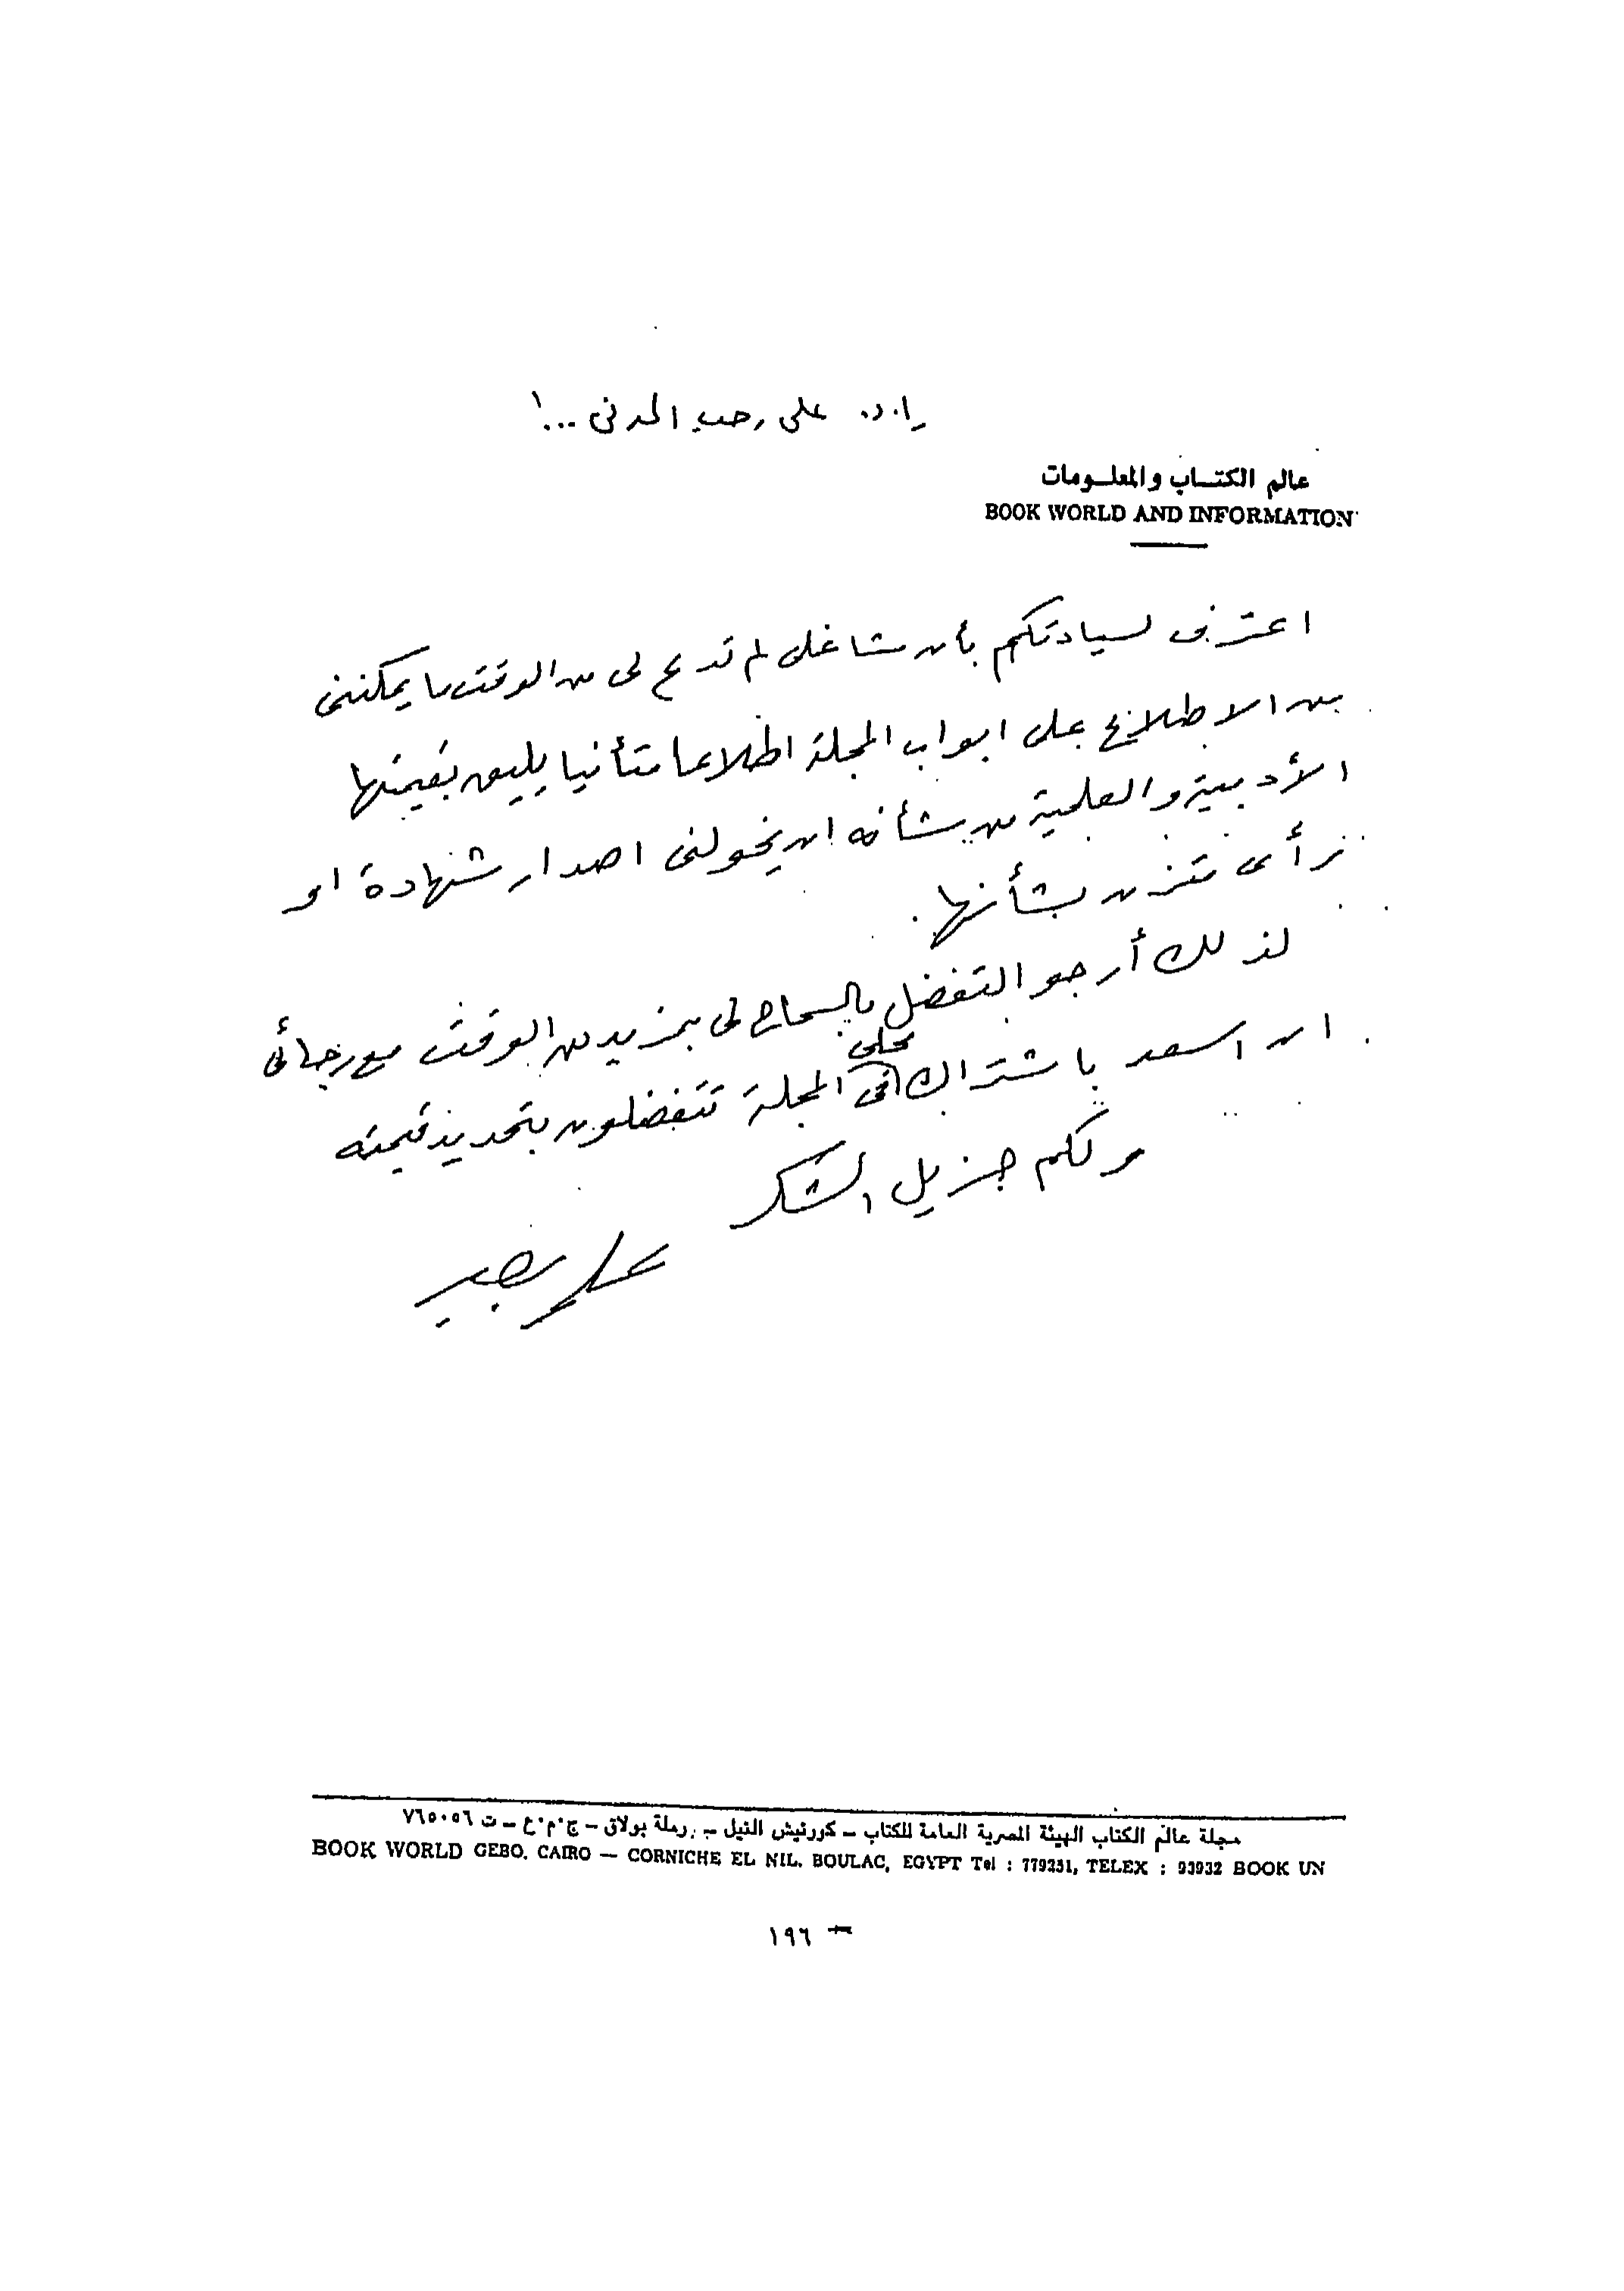 د. على رجب المدنى ...!
عالم الكتاب والمعلومات
BOOK WORLD AND INFORMATION
اعترف لسيادتكم بأن مشاغلى لم تدع لى من الوقت ما يمكننى
من الاطلاع على ابواب المجلة اطلاعا متأنيا يليق بقيمتها
الأدبية والعلمية من شأنه ان يخولنى اصدار شهادة او
رأى متزن بشأنها .
لذلك أرجو التفضل بالسماح لى بمزيد من الوقت مع رجائى
ان اسعد باشتراك فى المجلة تتفضلون بتحديد قيمته
محلى
ولكم جزيل الشكر
مجلة عالم الكتاب الهيئة المصرية العامة للكتاب – كورنيش النيل – رملة بولاق – ج.م.ع – ت ٧٦٥٠٥٦
BOOK WORLD GEBO. CAIRO — CORNICHE EL NIL. BOULAC, EGYPT Tel : 779231, TELEX : 93932 BOOK UN
— ١٩٦